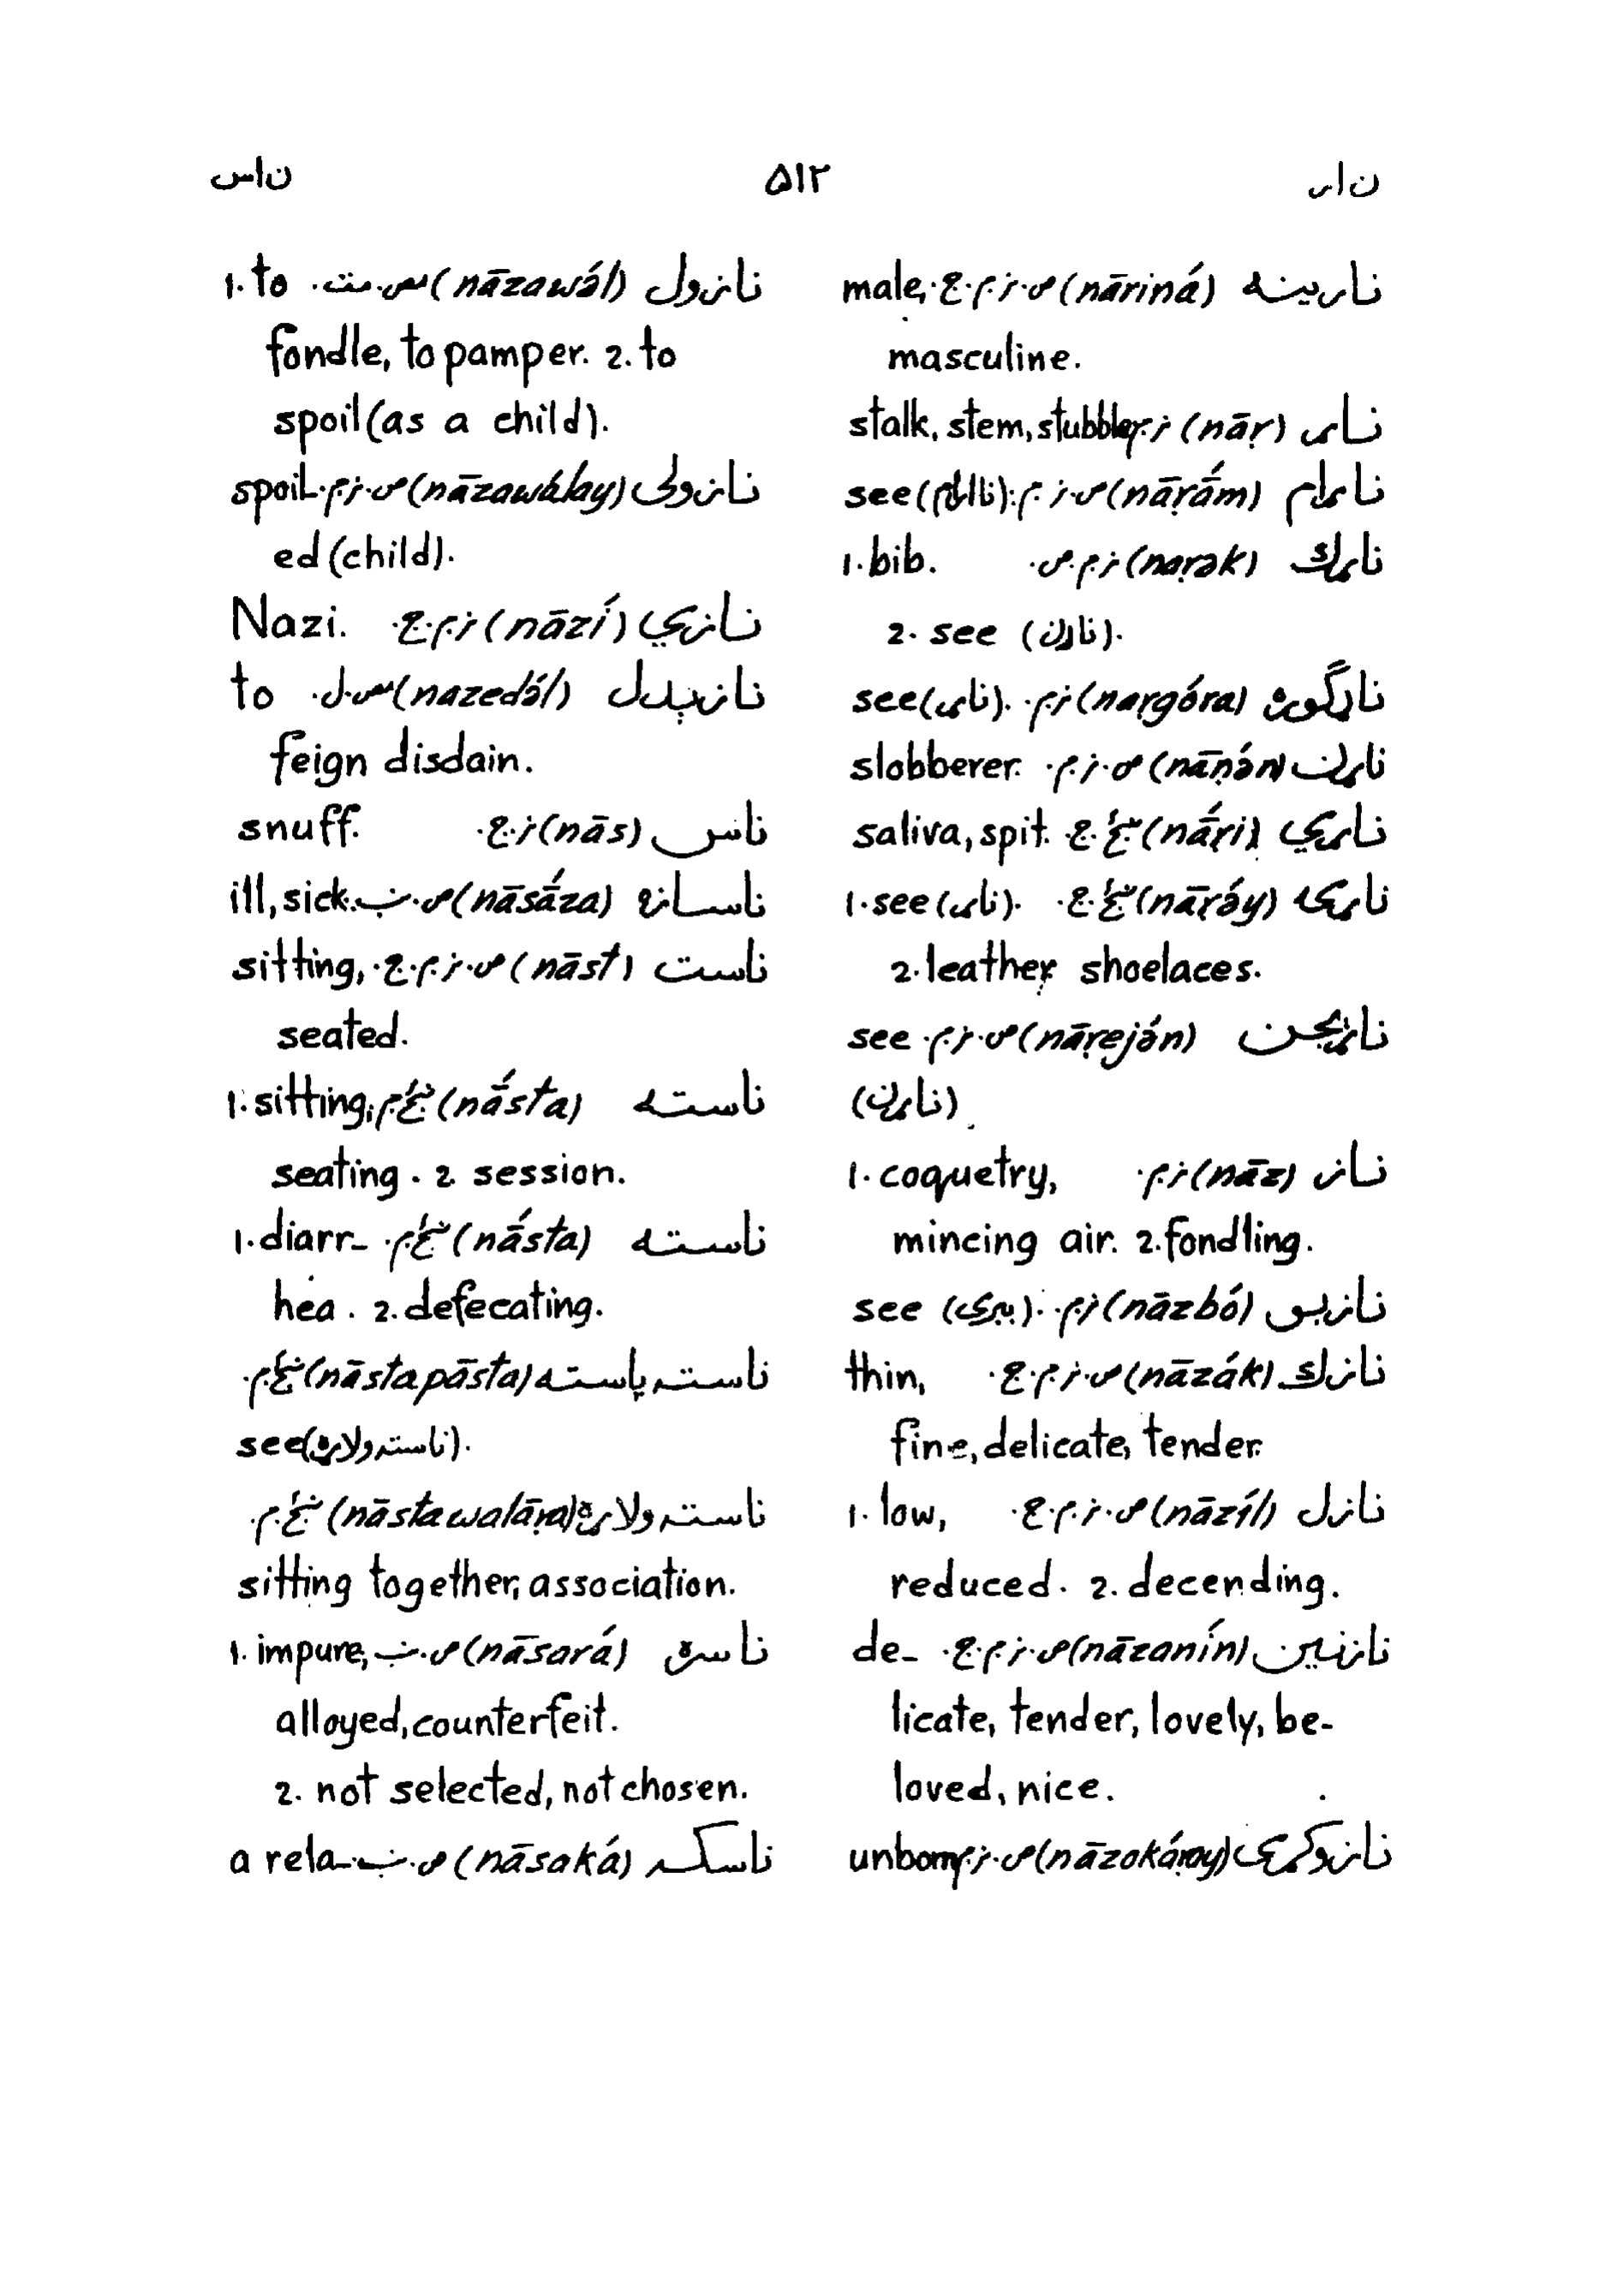 نار ۵۱۲ ناس
نارینه (nāriná) ص.ز.م.ج. male,
masculine.
ناړ (nāṛ) ز.م. stalk, stem, stubble.
ناړام (nāṛā́m) ص.ز.م. see
ناړك (naṛək) ز.م.ص. 1. bib.
2. see (ناړن).
ناړګوره (naṛgóra) ز.م. see (ناړ).
ناړن ص.ز.م. slobberer.
ناړي (nā́ṛi) ښځ.ج. saliva, spit.
ناړۍ (nāṛə́y) ښځ.ج. 1. see (ناړ).
2. leather shoelaces.
ناړېجن (nāṛejə́n) ص.ز.م. see
(ناړن)
ناز (nāz) ز.م. 1. coquetry,
mincing air. 2. fondling.
نازبو (nāzbó) ز.م. see
نازك (nāzák) ص.ز.م.ج. thin,
fine, delicate, tender.
نازل (nāzíl) ص.ز.م.ج. 1. low,
reduced. 2. decending.
نازنین (nāzanín) ص.ز.م.ج. de-
licate, tender, lovely, be-
loved, nice.
نازوکړی ص.ز.م. unborn
نازول (nāzawə́l) مص.مت. 1. to
fondle, to pamper. 2. to
spoil (as a child).
نازولی (nāzawə́lay) ص.ز.م. spoil-
ed (child).
نازي (nāzí) ز.م.ج. Nazi.
نازېدل (nazedə́l) مص.ل. to
feign disdain.
ناس (nās) ز.ج. snuff.
ناسازه (nāsā́za) ص.ب. ill, sick.
ناست (nāst) ص.ز.م.ج. sitting,
seated.
ناسته (nā́sta) ښځ.م. 1. sitting,
seating. 2. session.
ناسته (nā́sta) ښځ.م. 1. diarr-
hea. 2. defecating.
ناسته پاسته (nāsta pāsta) ښځ.م.
see (ناسته ولاړه).
ناسته ولاړه (nāsta walāṛa) ښځ.م.
sitting together, association.
ناسره (nāsará) ص.ب. 1. impure,
alloyed, counterfeit.
2. not selected, not chosen.
ناسکه (nāsaká) ص.ب. a rela-